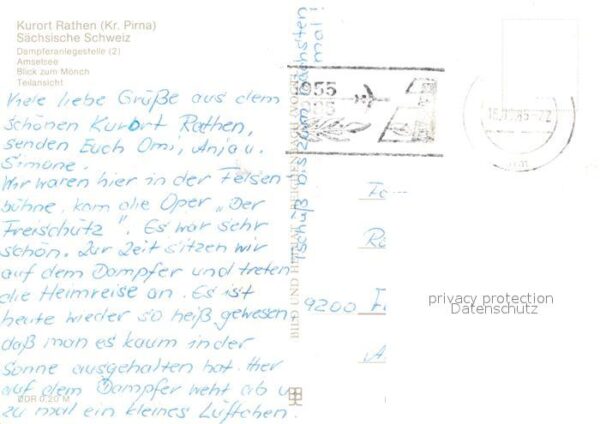 Kurort Rathen (Kr. Pirna)
Sächsische Schweiz
Dampferanlegestelle (2)
Amselsee
Blick zum Mönch
Teilansicht
Viele liebe Grüße aus dem
schönen Kurort Rathen,
senden Euch Omi, Anja u.
Simone.
Wir waren hier in der Felsen
bühne, kam die Oper „Der
Freischütz". Es war sehr
schön. Zur Zeit sitzen wir
auf dem Dampfer und treten
die Heimreise an. Es ist
heute wieder so heiß gewesen,
daß man es kaum in der
Sonne ausgehalten hat. Hier
auf dem Dampfer weht ab u.
zu mal ein kleines Lüftchen.
Tschüß bis zum nächsten
mal!
DDR 0,20 M
BILD UND HEIMAT
1955
1985
9200
privacy protection
Datenschutz